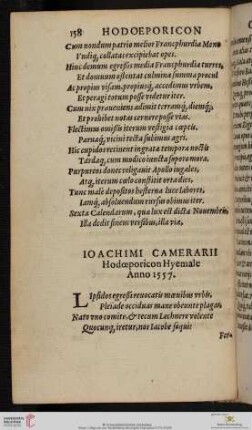 158 HODOEPORICON
Cum nondum patrio melior Francphurdia Meno
Vndiq; collatas excipiebat opes.
Hinc demum egressis media Francphurdia turres,
Et donuum ostentat culmina summa procul
Ac propius visam, propiusq; accedimus vrbem,
Et peragi totum posse videtur iter.
Cum nix prætereà adimit terramq; diemq;,
Et prohibet notas cernere posse vias.
Flectimus omissis iterum vestigia captis.
Paruaq; vicini tecta subimus agri.
Hic cupidos retinent ingrata tempora noctis
Tardaq; cum modico iuncta sopore mora.
Purpureos donec religauit Apollo iugales,
Atq; iterum cœlo constitit orta dies.
Tunc malè depositos hesterna luce labores,
Iamq; absoluendum cursus obimus iter.
Sexta Calendarum, qua lux est dicta Nouembris,
Illa dedit finem versibus, illa viæ.
IOACHIMI CAMERARII
Hodœporicon Hyemale
Anno 1557.
LIpsidos egressi reuocatis mœnibus vrbis,
Pleiade occiduas mane obeunte plagas,
Nato vno comite, & tecum Lechnere volente
Quocunq; iretur, nos Iacobe sequi